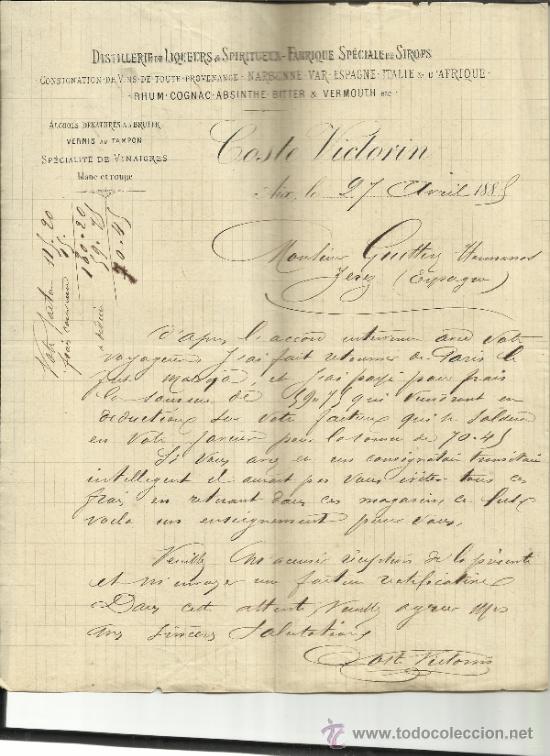 DISTILLERIE DE LIQUEURS & SPIRITUEUX - FABRIQUE SPÉCIALE DE SIROPS
CONSIGNATION DE VINS DE TOUTE PROVENANCE - NARBONNE - VAR - ESPAGNE - ITALIE & D'AFRIQUE
RHUM - COGNAC - ABSINTHE - BITTER & VERMOUTH etc
ALCOOLS DÉNATURÉS À BRULER
VERNIS AU TAMPON
SPÉCIALITÉ DE VINAIGRES
blanc et rouge
Coste Victorin
Aix, le 27 Avril 1885
Monsieur Hermanos
Jerez (Espagne)
Votre facture 115.20
15.
130.20
à déduire 59.75
70.45
D'après l'accord intervenu avec votre
voyageur J'ai fait retourner de Paris le
fut et j'ai payé pour frais
la somme de 59.75 qui viendront en
déduction sur votre facture qui se soldera
en votre faveur pour la somme de 70.45
Si vous avez eu un consignataire transitaire
intelligent il aurait pu vous éviter tous ces
frais en retirant dans ces magasins ce fut
voila un enseignement pour vous.
Veuillez m'accuser réception de la présente
et m'envoyer un facture rectificative
Dans cette attente Veuillez agréer Mrs
mes sincères salutations
Coste Victorin
todocoleccion
www.todocoleccion.net